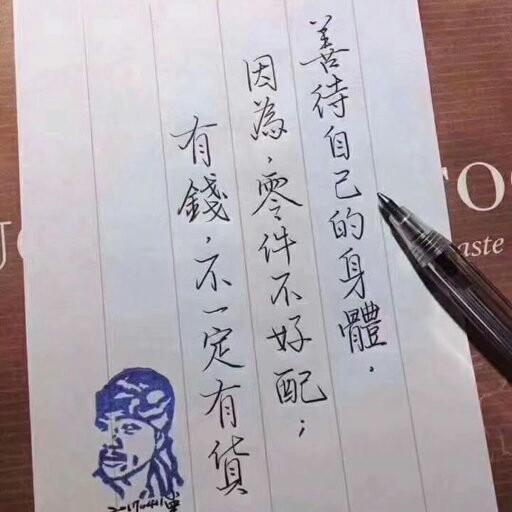 善待自己的身體.
因為,零件不好配;
有錢,不一定有貨
aste